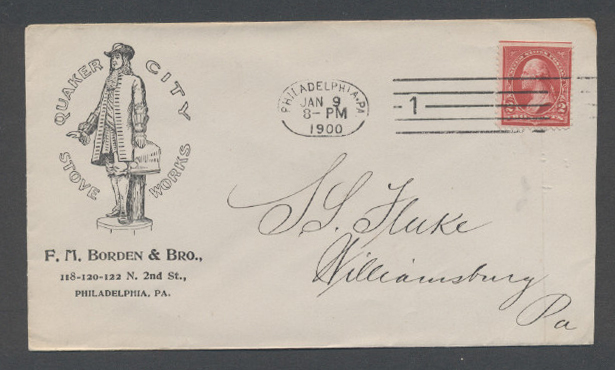 QUAKER CITY
STOVE WORKS
F. M. BORDEN & BRO.,
118-120-122 N. 2nd St.,
PHILADELPHIA, PA.
PHILADELPHIA, PA.
JAN 9
8-PM
1900
1
2 2
S. S. Fluke
Williamsburg
Pa